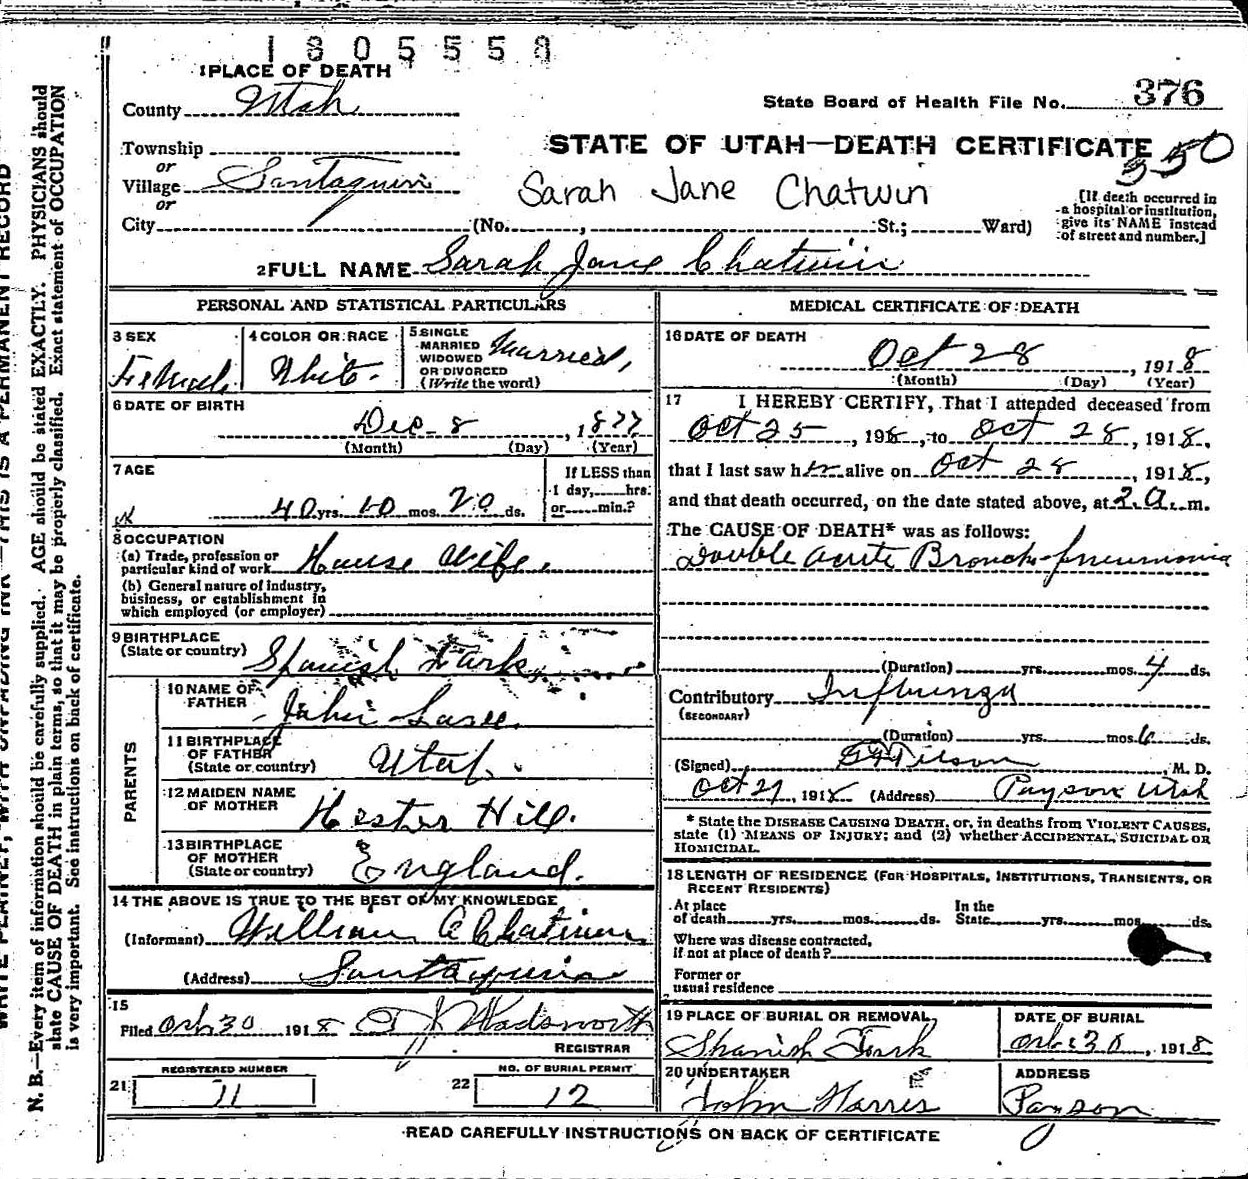 1805558
1 PLACE OF DEATH
County Utah
State Board of Health File No. 376
Township
or
Village Santaquin
or
City
STATE OF UTAH—DEATH CERTIFICATE
350
Sarah Jane Chatwin
(No. , St.; Ward)
[If death occurred in
a hospital or institution,
give its NAME instead
of street and number.]
2 FULL NAME Sarah Jane Chatwin
PERSONAL AND STATISTICAL PARTICULARS
3 SEX
Female
4 COLOR OR RACE
White
5 SINGLE
MARRIED
WIDOWED
OR DIVORCED
(Write the word)
Married,
6 DATE OF BIRTH
Dec 8, 1877
(Month) (Day) (Year)
7 AGE
40 yrs. 10 mos. 20 ds.
If LESS than
1 day, hrs.
or min.?
8 OCCUPATION
(a) Trade, profession or
particular kind of work House Wife
(b) General nature of industry,
business, or establishment in
which employed (or employer)
9 BIRTHPLACE
(State or country) Spanish Fork
PARENTS
10 NAME OF
FATHER John
11 BIRTHPLACE
OF FATHER
(State or country) Utah
12 MAIDEN NAME
OF MOTHER Hester Hill.
13 BIRTHPLACE
OF MOTHER
(State or country) England.
14 THE ABOVE IS TRUE TO THE BEST OF MY KNOWLEDGE
(Informant) William A Chatwin
(Address) Santaquin
15
Filed Oct 30 1918 Wadsworth
REGISTRAR
REGISTERED NUMBER
21 11
NO. OF BURIAL PERMIT
22 12
MEDICAL CERTIFICATE OF DEATH
16 DATE OF DEATH
Oct 28, 1918
(Month) (Day) (Year)
17 I HEREBY CERTIFY, That I attended deceased from
Oct 25, 1918, to Oct 28, 1918,
that I last saw her alive on Oct 28, 1918,
and that death occurred, on the date stated above, at 2 a. m.
The CAUSE OF DEATH* was as follows:
Double Acute Broncho-pneumonia
(Duration) yrs. mos. 4 ds.
Contributory Influenza
(SECONDARY)
(Duration) yrs. mos. 6 ds.
(Signed) , M. D.
Oct 29, 1918 (Address) Payson Utah
* State the DISEASE CAUSING DEATH, or, in deaths from VIOLENT CAUSES,
state (1) MEANS OF INJURY; and (2) whether ACCIDENTAL, SUICIDAL OR
HOMICIDAL.
18 LENGTH OF RESIDENCE (FOR HOSPITALS, INSTITUTIONS, TRANSIENTS, OR
RECENT RESIDENTS)
At place
of death yrs. mos. ds.
In the
State yrs. mos. ds.
Where was disease contracted,
if not at place of death?
Former or
usual residence
19 PLACE OF BURIAL OR REMOVAL,
Spanish Fork
DATE OF BURIAL
Oct 30, 1918
20 UNDERTAKER
John Harris
ADDRESS
Payson
READ CAREFULLY INSTRUCTIONS ON BACK OF CERTIFICATE
WRITE PLAINLY, WITH UNFADING INK—THIS IS A PERMANENT RECORD
N. B.—Every item of information should be carefully supplied. AGE should be stated EXACTLY. PHYSICIANS should
state CAUSE OF DEATH in plain terms, so that it may be properly classified. Exact statement of OCCUPATION
is very important. See instructions on back of certificate.